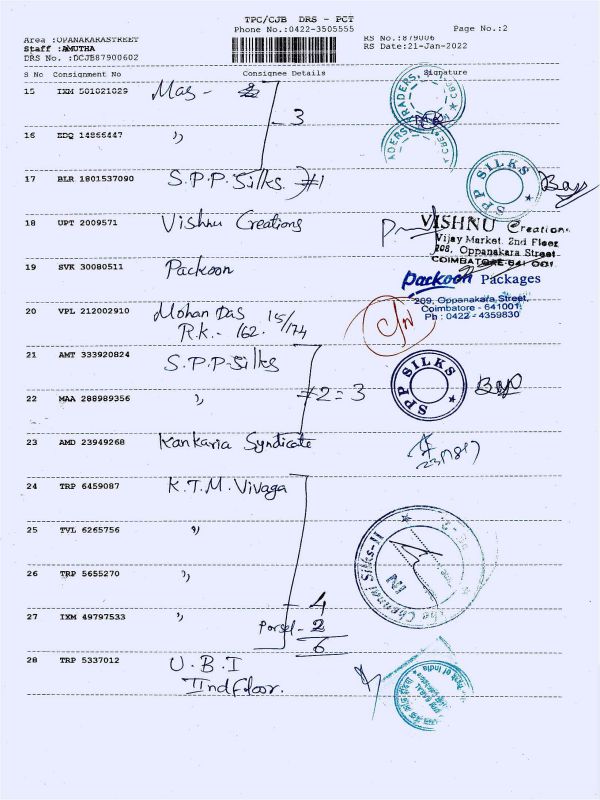 TPC/CJB DRS - PCT
Phone No.:0422-3505555
Page No.:2
Area :OPANAKARASTREET
Staff :AMUTHA
DRS No. :DCJB87900602
RS No.:879006
RS Date:21-Jan-2022
S No Consignment No Consignee Details Signature
15 IXM 501021029 Mas -
3
16 EDQ 14866447 ,,
17 BLR 1801537090 S.P.P. Silks #1
SPP SILKS
18 UPT 2009571 Vishnu Creations
VISHNU Creations
Vijay Market, 2nd Floor
208, Oppanakara Street
COIMBATORE-641 001
19 SVK 30080511 Packoon
Packoon Packages
209, Oppanakara Street,
Coimbatore - 641001
Ph : 0422 - 4359830
20 VPL 212002910 Mohan Das 15/174
R.K. - 162.
21 AMT 333920824 S.P.P. Silks
SPP SILKS
22 MAA 288989356 ,, #2 = 3
23 AMD 23949268 Kankaria Syndicate
24 TRP 6459087 K.T.M. Vivaga
25 TVL 6265756 ,,
The Chennai Silks-II
26 TRP 5655270 ,,
27 IXM 49797533 ,,
4
Porsel - 2
6
28 TRP 5337012 U.B.I
IInd Floor.